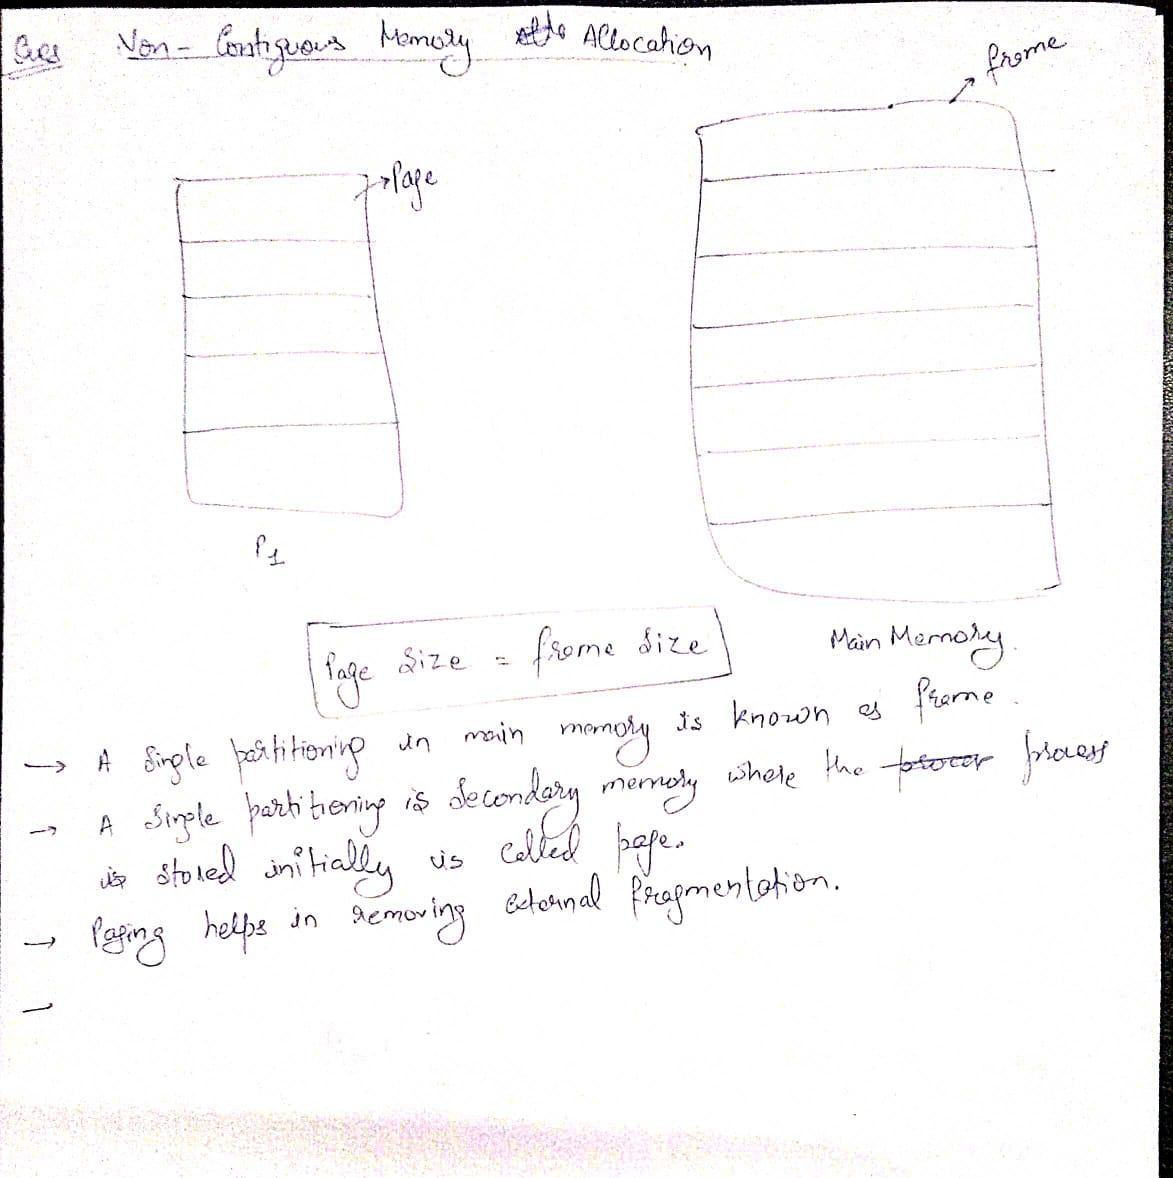 Ques Non-Contiguous Memory Allocation
frame
Page
P1
Page Size = frame size
Main Memory.
→ A single partitioning in main memory is known as frame.
→ A single partitioning is secondary memory where the process
is stored initially is called page.
→ Paging helps in removing external fragmentation.